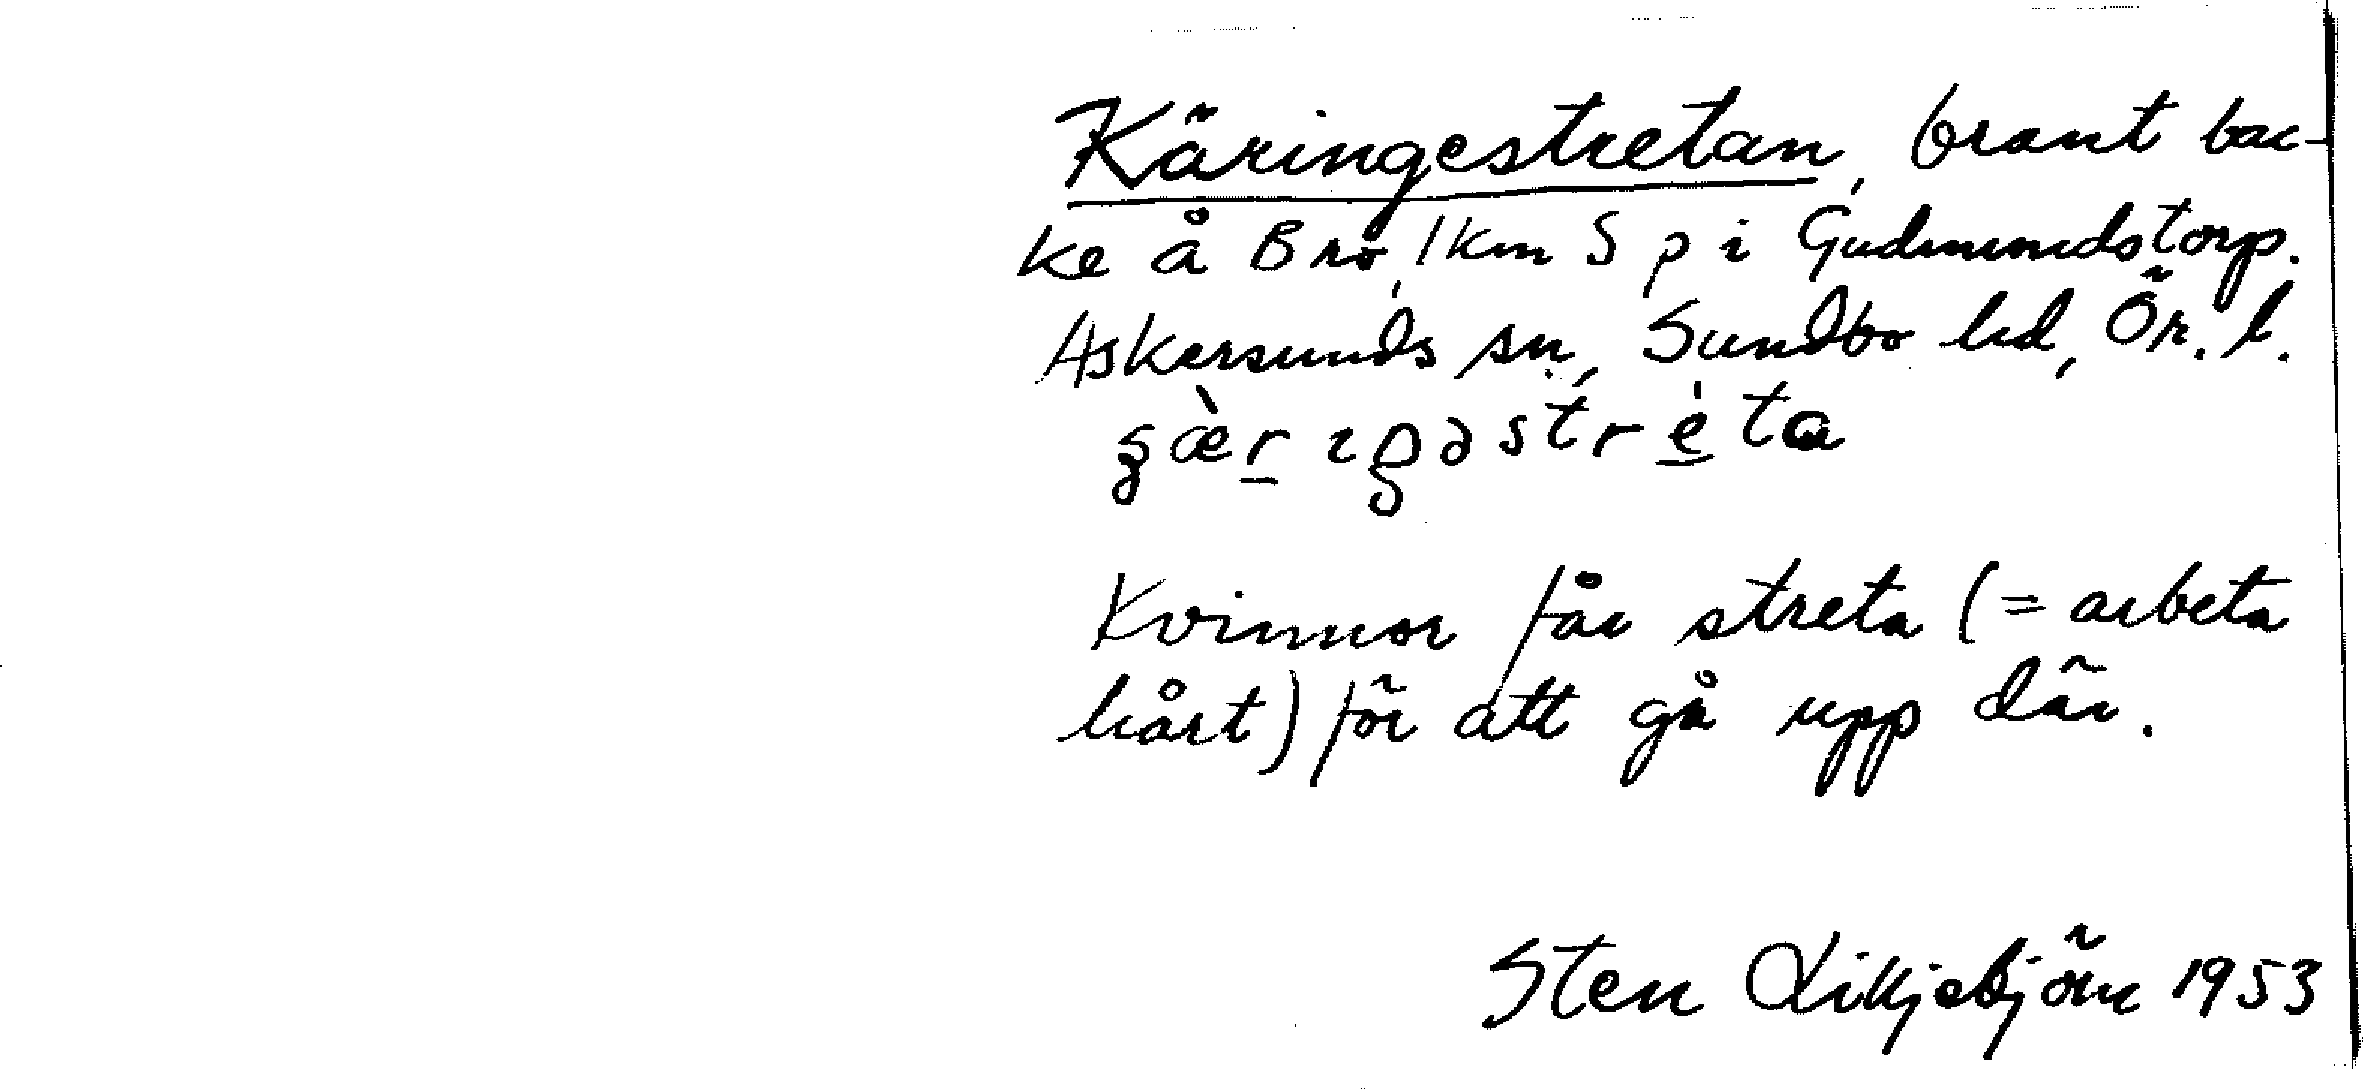 Käringestretan, brant bac-
ke å Brö, 1 km S p i Gudmundstorp.
Askersunds sn, Sundbo hd, Ör. l.
Kvinnor får streta (= arbeta
hårt) för att gå upp där.
Sten 1953